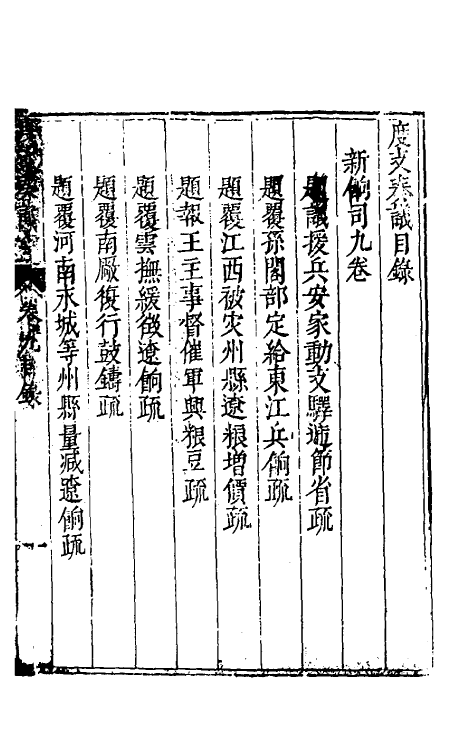 度支奏議目錄
新餉司九卷
題議援兵安家動支驛逓節省疏
題覆孫閣部定給東江兵餉疏
題覆江西被灾州縣遼粮增價疏
題報王主事督催軍興粮豆疏
題覆雲撫緩徵遼餉疏
題覆南厰復行鼓鑄疏
題覆河南永城等州縣量減遼餉疏
卷九目錄